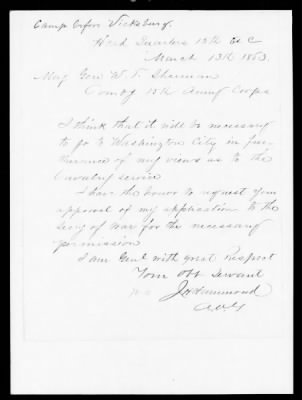 Camp before Vicksburg.
Head Quarters 15th A C
March 13th 1863.
Maj Genl W. T. Sherman
Comdg 15th Army Corps
I think that it will be necessary
to go to Washington City in fur-
therance of my views as to the
Cavalry service
I have the honor to request your
approval of my application to the
Secy of War for the necessary
permission
I am Genl with great Respect
Your Obt Servant
J H Hammond
A A G